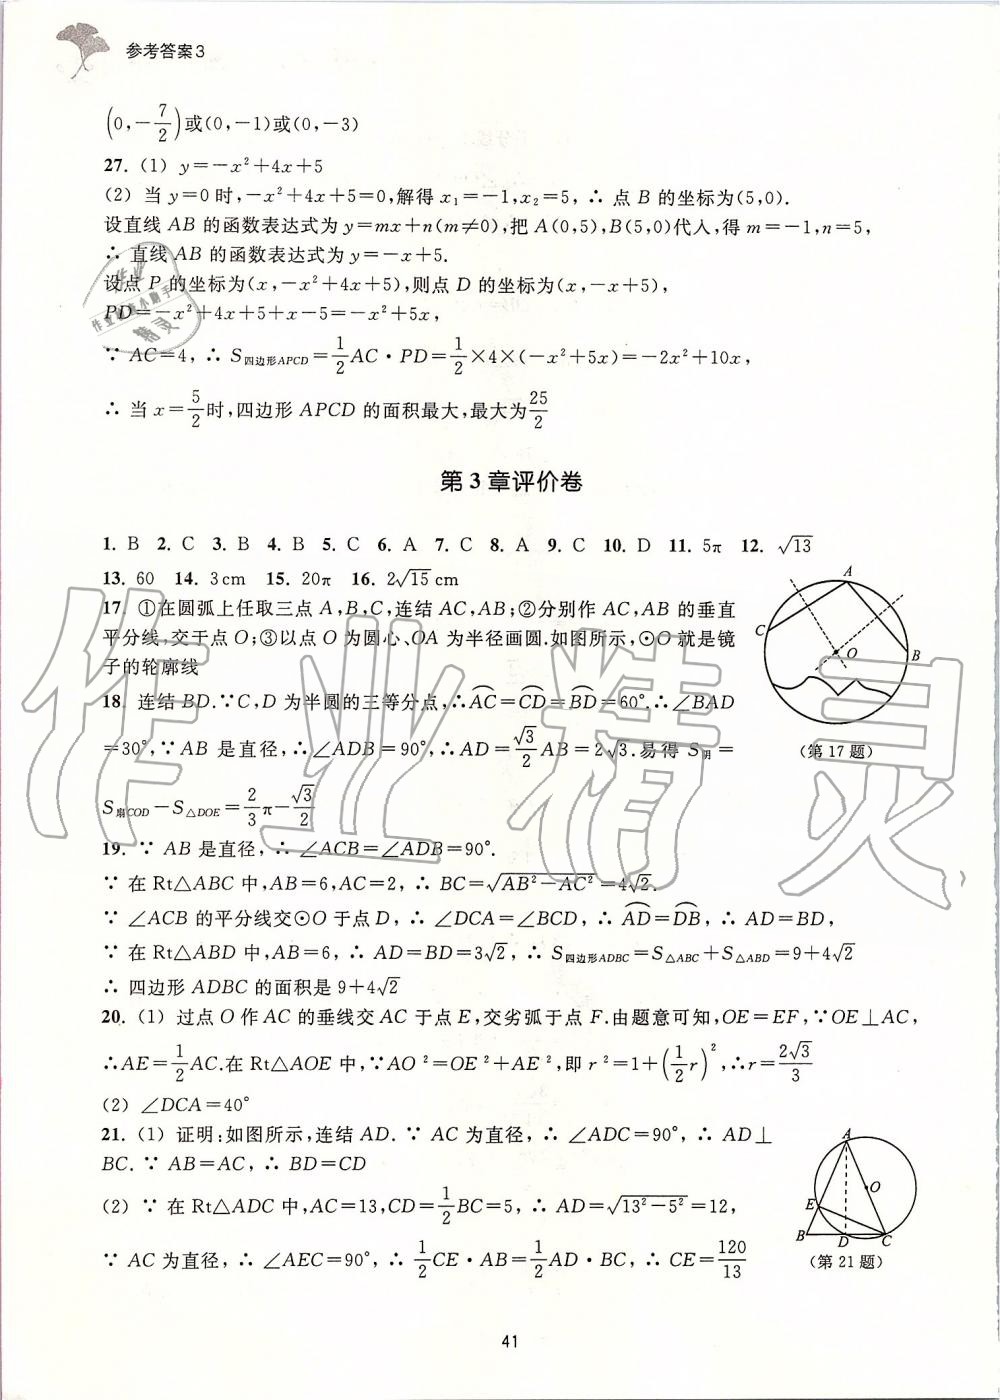 参考答案3
(0,-7/2)或(0,-1)或(0,-3)
27.(1) y=-x²+4x+5
(2) 当 y=0 时,-x²+4x+5=0,解得 x₁=-1,x₂=5,∴ 点 B 的坐标为(5,0).
设直线 AB 的函数表达式为 y=mx+n(m≠0),把 A(0,5),B(5,0)代人,得 m=-1,n=5,
∴ 直线 AB 的函数表达式为 y=-x+5.
设点 P 的坐标为(x,-x²+4x+5),则点 D 的坐标为(x,-x+5),
PD=-x²+4x+5+x-5=-x²+5x,
∵ AC=4,∴ S四边形APCD=1/2 AC·PD=1/2×4×(-x²+5x)=-2x²+10x,
∴ 当 x=5/2时,四边形 APCD 的面积最大,最大为25/2
第3章评价卷
1. B 2. C 3. B 4. B 5. C 6. A 7. C 8. A 9. C 10. D 11. 5π 12. √13
13. 60 14. 3cm 15. 20π 16. 2√15cm
17. ①在圆弧上任取三点 A,B,C,连结 AC,AB;②分别作 AC,AB 的垂直
平分线,交于点 O;③以点 O 为圆心、OA 为半径画圆.如图所示,⊙O 就是镜
子的轮廓线
A
C
O
B
(第17题)
18. 连结 BD.∵C,D 为半圆的三等分点,∴⌒AC=⌒CD=⌒BD=60°.∴∠BAD
=30°,∵AB 是直径,∴∠ADB=90°,∴AD=√3/2 AB=2√3.易得 S阴=
S扇COD-S△DOE=2/3π-√3/2
19. ∵ AB 是直径,∴ ∠ACB=∠ADB=90°.
∵ 在 Rt△ABC 中,AB=6,AC=2,∴ BC=√(AB²-AC²)=4√2.
∵ ∠ACB 的平分线交⊙O 于点 D,∴ ∠DCA=∠BCD,∴ ⌒AD=⌒DB,∴ AD=BD,
∵ 在 Rt△ABD 中,AB=6,∴ AD=BD=3√2,∴ S四边形ADBC=S△ABC+S△ABD=9+4√2
∴ 四边形 ADBC 的面积是 9+4√2
20.(1) 过点 O 作 AC 的垂线交 AC 于点 E,交劣弧于点 F.由题意可知,OE=EF,∵OE⊥AC,
∴AE=1/2 AC.在 Rt△AOE 中,∵AO²=OE²+AE²,即 r²=1+(1/2 r)²,∴r=2√3/3
(2) ∠DCA=40°
21.(1) 证明:如图所示,连结 AD.∵ AC 为直径,∴ ∠ADC=90°,∴ AD⊥
BC.∵ AB=AC,∴ BD=CD
(2) ∵ 在 Rt△ADC 中,AC=13,CD=1/2 BC=5,∴ AD=√(13²-5²)=12,
∵ AC 为直径,∴ ∠AEC=90°,∴ 1/2 CE·AB=1/2 AD·BC,∴ CE=120/13
A
O
E
B
D
C
(第21题)
41
作业精灵